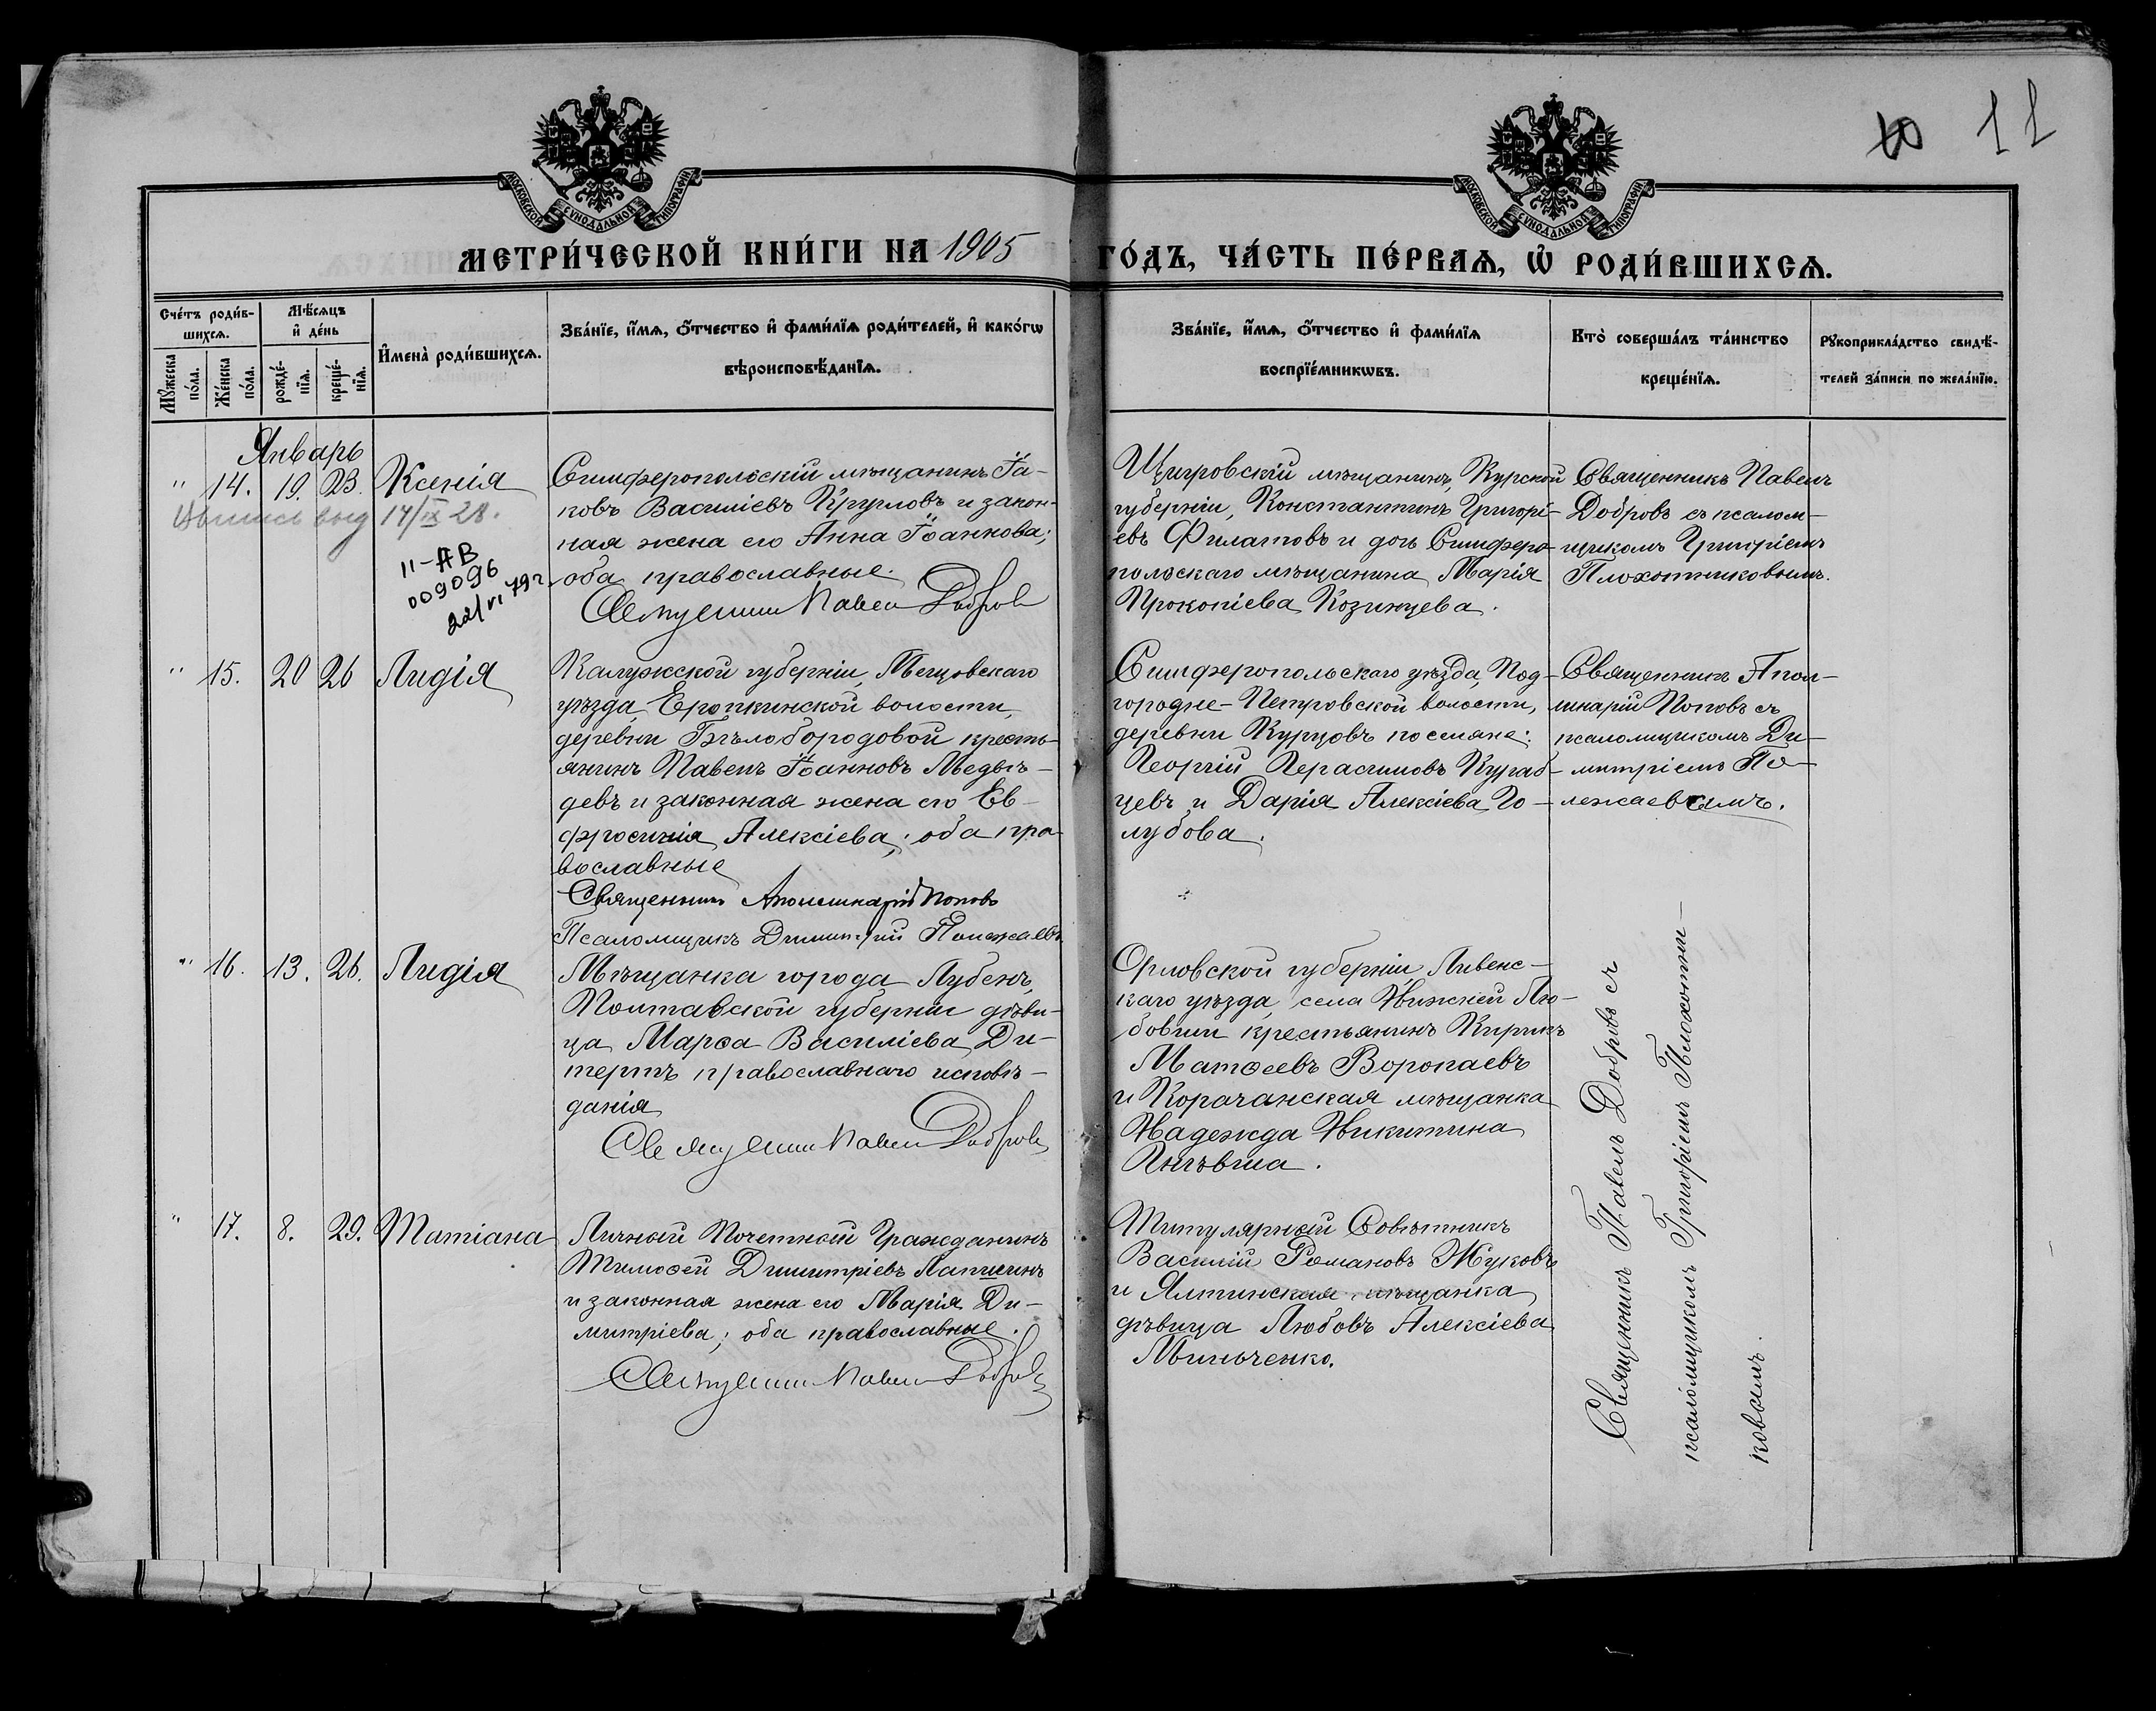 10 11
МОСКОВСКОЙ СѴНОДАЛЬНОЙ ТИПОГРАФІИ
МОСКОВСКОЙ СѴНОДАЛЬНОЙ ТИПОГРАФІИ
МЕТРИ́ЧЕСКОЙ КНИ́ГИ НА 1905 ГО́ДЪ, ЧА́СТЬ ПЕ́РВАѦ, Ѡ РОДИ́ВШИХСѦ.
Сче́тъ роди́в-
шихсѧ.
Мꙋжеска
по́ла.
Же́нска
по́ла.
Мѣ́сѧцъ
и҆ де́нь
рожде́-
нїѧ.
креще́-
нїѧ.
И҆мена̀ роди́вшихсѧ.
Зва́нїе, и҆́мѧ, ѻ҆́тчество и҆ фами́лїѧ роди́телей, и҆ како́гѡ
вѣроисповѣ́данїѧ.
Зва́нїе, и҆́мѧ, ѻ҆́тчество и҆ фами́лїѧ
воспрїе́мникѡвъ.
Кто̀ соверша́лъ та́инство
креще́нїѧ.
Рꙋкоприкла́дство свидѣ́-
телей за́писи по жела́нїю.
Январь
" 14. 19. 23. Ксенія
выд 14/IX 28.
II-АВ
009096
22/VI 79 г.
Симферопольскій мѣщанинъ Іа-
ковъ Василіевъ Круgловъ и закон-
ная жена его Анна Іоаннова;
оба православные.
Священникъ Павелъ Добровъ
Щигровскій мѣщанинъ, Курской
губерніи, Константинъ Григорі-
евъ Филатовъ и дочь Симферо-
польскаго мѣщанина Марія
Прокопіева Козинцева.
Священникъ Павелъ
Добровъ съ псалом-
щикомъ Григоріемъ
Плохотниковымъ.
" 15. 20 26 Лидія
Калужской губерніи, Мещовскаго
уѣзда, Еропкинской волости,
деревни Бѣлобородовой кресть-
янинъ Павелъ Іоанновъ Медвѣ-
девъ и законная жена его Ев-
фросинія Алексіева; оба пра-
вославные
Священникъ Аполлинарій Поповъ
Псаломщикъ Димитрій Полежаевъ
Симферопольскаго уѣзда, Под-
городне-Петровской волости,
деревни Курцовъ поселяне:
Георгій Герасимовъ Кураб-
цевъ и Дарія Алексіева Го-
лубова.
Священникъ Апол-
линарій Поповъ съ
псаломщикомъ Ди-
митріемъ По-
лежаевымъ.
" 16. 13. 26. Лидія
Мѣщанка города Лубенъ,
Полтавской губерніи дѣви-
ца Марѳа Василіева Ди-
тертъ православнаго исповѣ-
данія
Священникъ Павелъ Добровъ
Орловской губерніи, Ливенс-
каго уѣзда, села Нижней Лю-
бовши крестьянинъ Кирикъ
Матѳеевъ Воропаевъ
и Корочанская мѣщанка
Надежда Никитина
" 17. 8. 29. Татіана
Личный Почетный Гражданинъ
Тимоѳей Димитріевъ Лапшинъ
и законная жена его Марія Ди-
митріева; оба православные.
Священникъ Павелъ Добровъ
Титулярный Совѣтникъ
Василій Романовъ Жуковъ
и Ялтинская мѣщанка
дѣвица Любовь Алексіева
Минченко.
Священникъ Павелъ Добровъ съ
псаломщикомъ Григоріемъ Плохотни-
ковымъ.